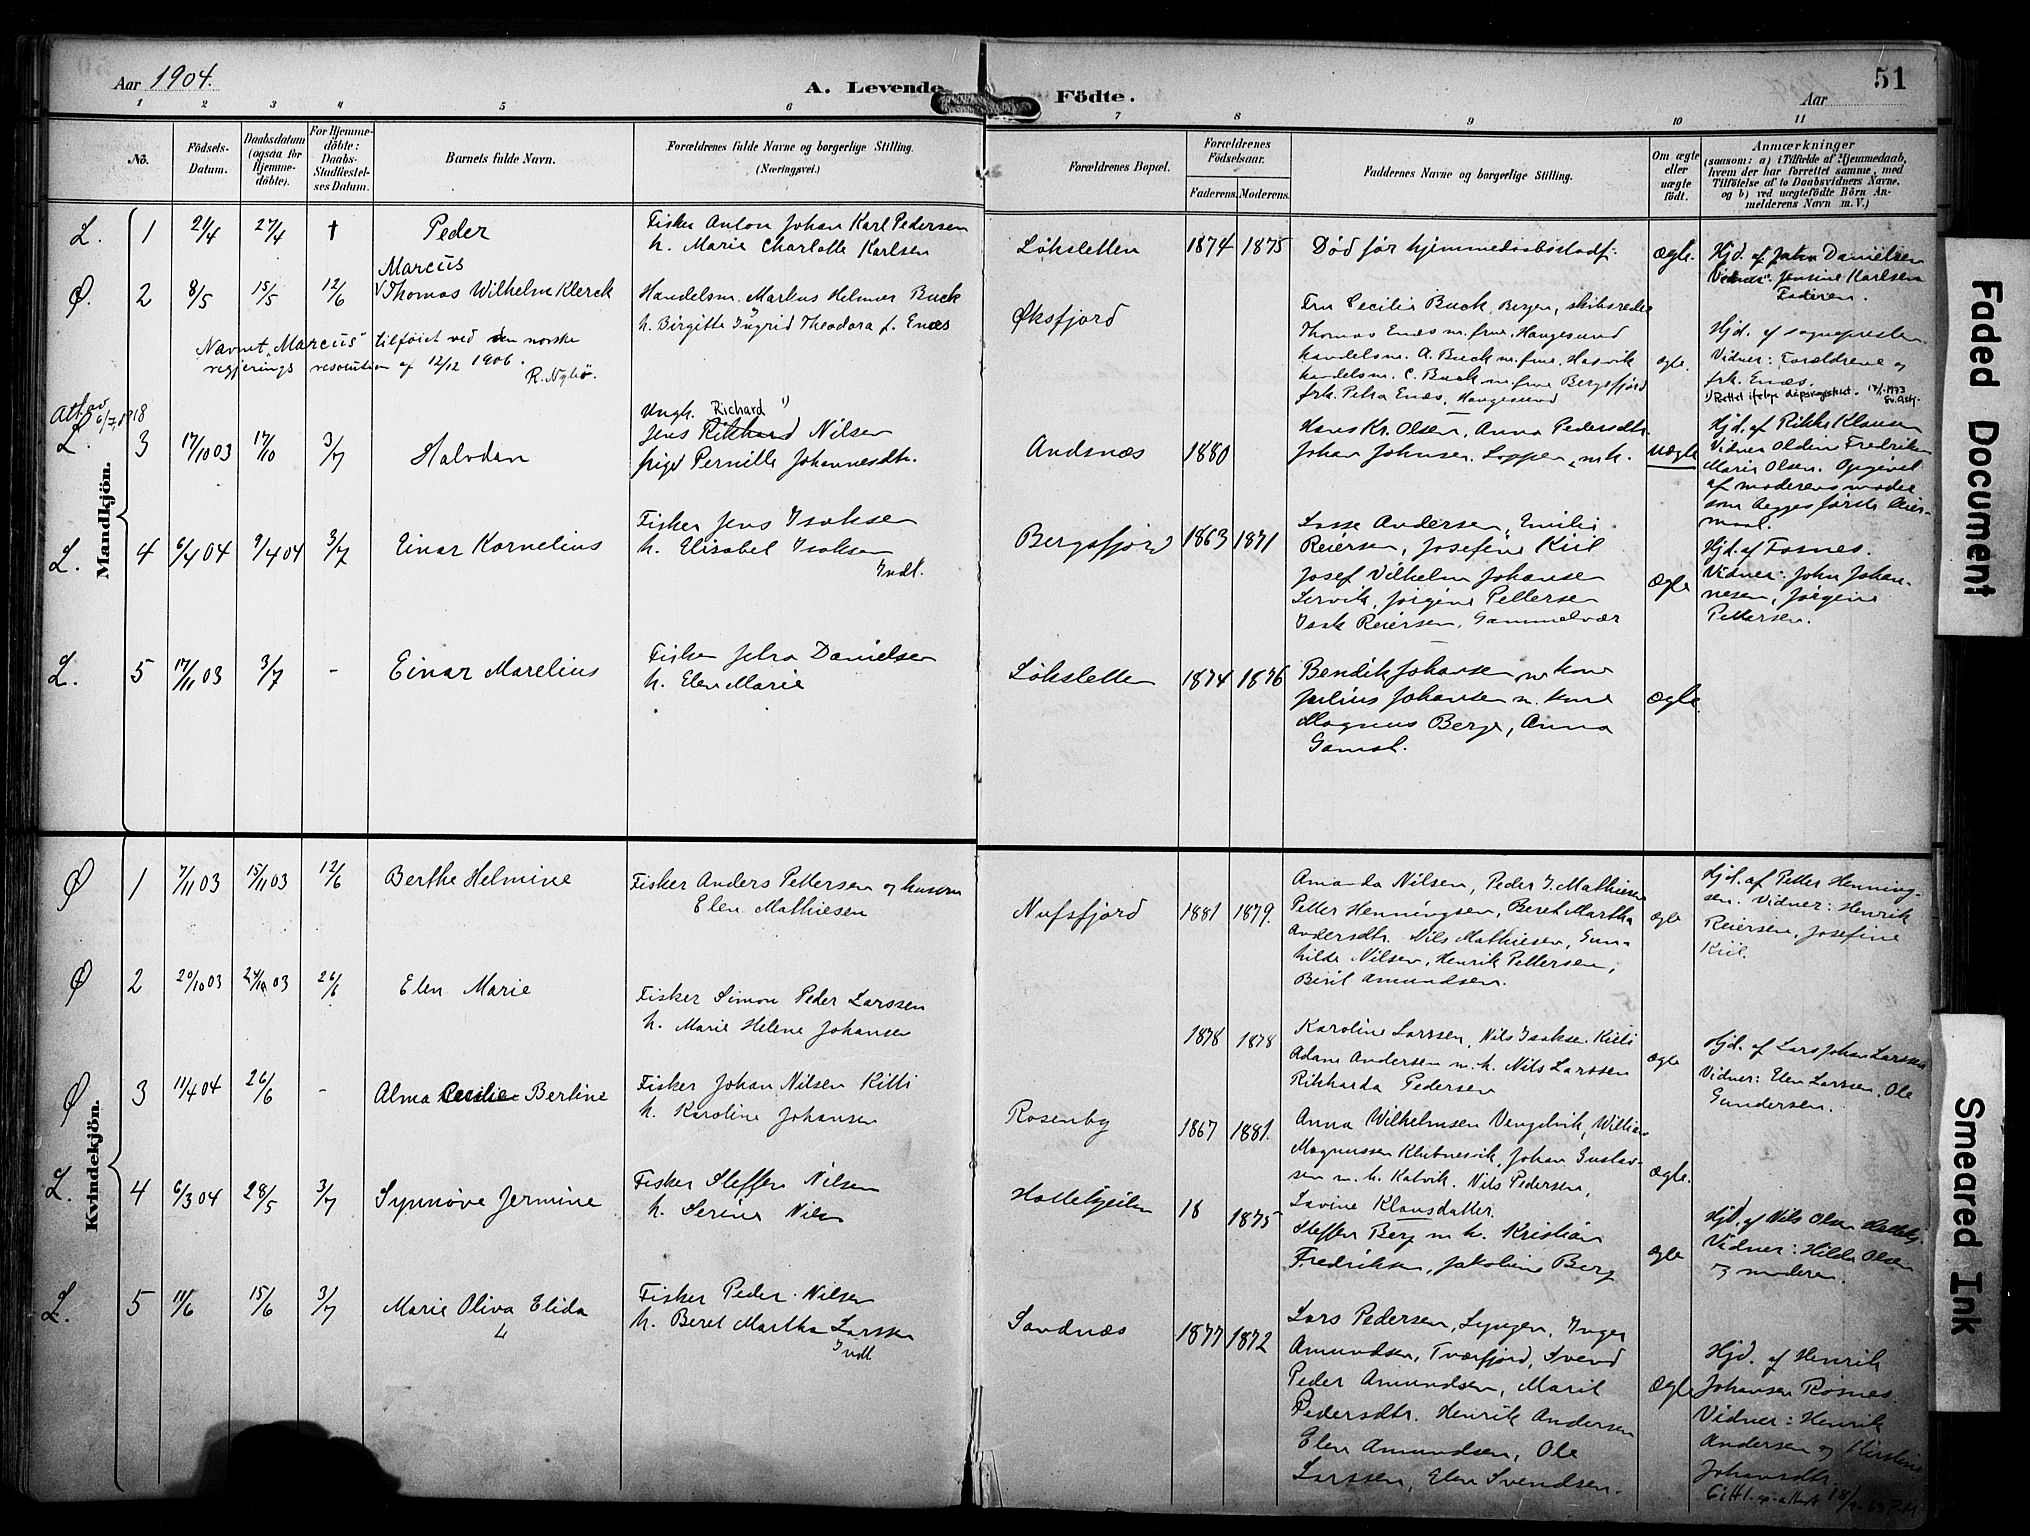 Aar 1904.
A. Levende Födte.
51
Aar
1 2 3 4 5 6 7 8 9 10 11
No.
Födsels-
Datum.
Daabsdatum
(ogsaa for
Hjemme-
döbte).
For Hjemme-
döbte:
Daabs-
Stadfæstel-
ses Datum.
Barnets fulde Navn.
Forældrenes fulde Navne og borgerlige Stilling.
(Næringsvei.)
Forældrenes Bopæl.
Forældrenes
Födselsaar.
Faderens. Moderens.
Faddernes Navne og borgerlige Stilling.
Om ægte
eller
uægte
födt.
Anmærkninger
(saasom: a) i Tilfælde af Hjemmedaab,
hvem der har forrettet samme, med
Tilföielse af to Daabsvidners Navne,
og b) ved uægtefödte Börn An-
melderens Navn m. V.)
Mandkjön.
L. 1 21/4 27/4 † Peder
Fisker Anton Johan Karl Pedersen
h. Marie Charlotte Karlsen
Løksletten 1874 1875
Død før hjemmedaabsstadf.
Ægte.
Hjd. af John Danielsen
Vidner: Jensine Karlsen
Faderen.
Ø. 2 8/5 15/5 12/6
Marcus
Thomas Wilhelm Klerck
Handelsm. Markus Helmer Buck
h. Birgitte Ingrid Theodora f. Enæs
Øksfjord
Fru Cecilie Buck, Bergen, skibsreder
Thomas Enæs m. frue, Haugesund
handelsm. A. Buck m. frue, Hasvik
handelsm. C. Buck m. frue Bergsfjord
frk. Petra Enæs, Haugesund
ægte.
Hjd. af sognepresten
Vidner: Forældrene og
frk. Enæs.
1) Rettet ifølge dåpsregisteret.
Navnet "Marcus" tilføiet ved den norske
regjerings resolution af 12/12 1906.
R. Nyhø.
Att. av
6/7, 1918
L. 3 17/10 03 17/10 3/7 Halvdan
Ungk. Richard 1)
Jens Rikhard Nilsen
pige Pernille Johannesdtr.
Andsnæs 1880
Hans Kr. Olsen, Anna Pedersdtr.
Johan Johnsen. Loppen m. k.
Uægte
Hjd. af Rikke Klausen
Vidner Oldine Fredrikke
Marie Olsen. Opgivet
af moderens moder
som begges første leier-
maal.
L. 4 6/4 04 9/4 04 3/7 Einar Kornelius
Fisker Jens Isaksen
h. Elisabet Isaksen
Indl.
Bergsfjord 1863 1871
Lasse Andersen, Emilie
Reiersen, Josefine Kiil
Josef Vilhelm Johansen
Lervik, Jørgine Pettersen
Isak Reiersen, Gammelvær
Ægte
Hjd. af Fosnes.
Vidner: John Johan-
nesen, Jørgine
Pettersen.
L. 5 17/11 03 3/7 - Einar Marelius
Fisker Petra Danielsen
h. Elen Marie
Løksletten 1874 1876
Bendik Johansen m. kone
Julius Johansen m. kone
Magnus Berg, Anna
Gamst.
Ægte.
Kvindekjön.
Ø 1 7/11 03 15/11 03 12/6 Berthe Helmine
Fisker Anders Pettersen og hustru
Elen Mathiesen
Nufsfjord 1881 1879.
Amanda Nilsen, Peder J. Mathiesen
Petter Henningsen, Beret Martha
Andersdtr. Nils Mathiesen, Gun-
hilde Nilsen, Henrik Pettersen,
Berit Amundsen.
ægte
Hjd. af Petter Henning-
sen. Vidner: Henrik
Reiersen, Josefine
Kiil.
Ø 2 20/10 03 24/10 03 26/6 Elen Marie
Fisker Simon Peder Larssen
h. Marie Helene Johansen
1878 1878
Karoline Larssen, Nils Isaksen Kitti
Adam Andersen m. h. Nils Larssen
Rikharda Pedersen
Ægte
Hjd. af Lars Johan Larssen
Vidner: Elen Larssen, Ole
Gundersen.
Ø 3 11/4 04 26/6 - Alma Cecilie Bertine
Fisker Johan Nilsen Kitti
h. Karoline Johansen
Rosenby 1867 1881.
Anna Wilhelmsen Vengelvik, William
Magnussen Klubnesvik, Johan Gustav-
sen m. h. Kalvik. Nils Pedersen,
Lavine Klausdatter.
Ægte.
L. 4 6/3 04 28/5 3/7 Synnøve Jermine
Fisker Steffen Nilsen
h. Serine Nilsen
18 1875
Steffen Berg m. h. Kristian
Fredriksen, Jakobine Berg
Ægte
Hjd. af Nils Olsen
Vidner: Hilda Olsen
og moderen.
L. 5 11/6 15/6 3/7 Marie Oliva Elida
Fisker Peder Nilsen
h. Beret Martha Larssen
Indl.
Sandnæs 1877 1872
Lars Pedersen, Lyngen, Inger
Amundsen, Tverfjord, Svend
Peder Amundsen, Marit
Pedersdtr. Henrik Andersen
Elen Amundsen, Ole
Larssen, Elen Svendsen.
Ægte
Hjd. af Henrik
Johansen Rosnes.
Vidner: Henrik
Andersen og Kirstine
Johansdtr.
Faded Document
Smeared Ink